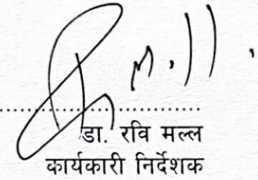 डा. रवि मल्ल
कार्यकारी निर्देशक